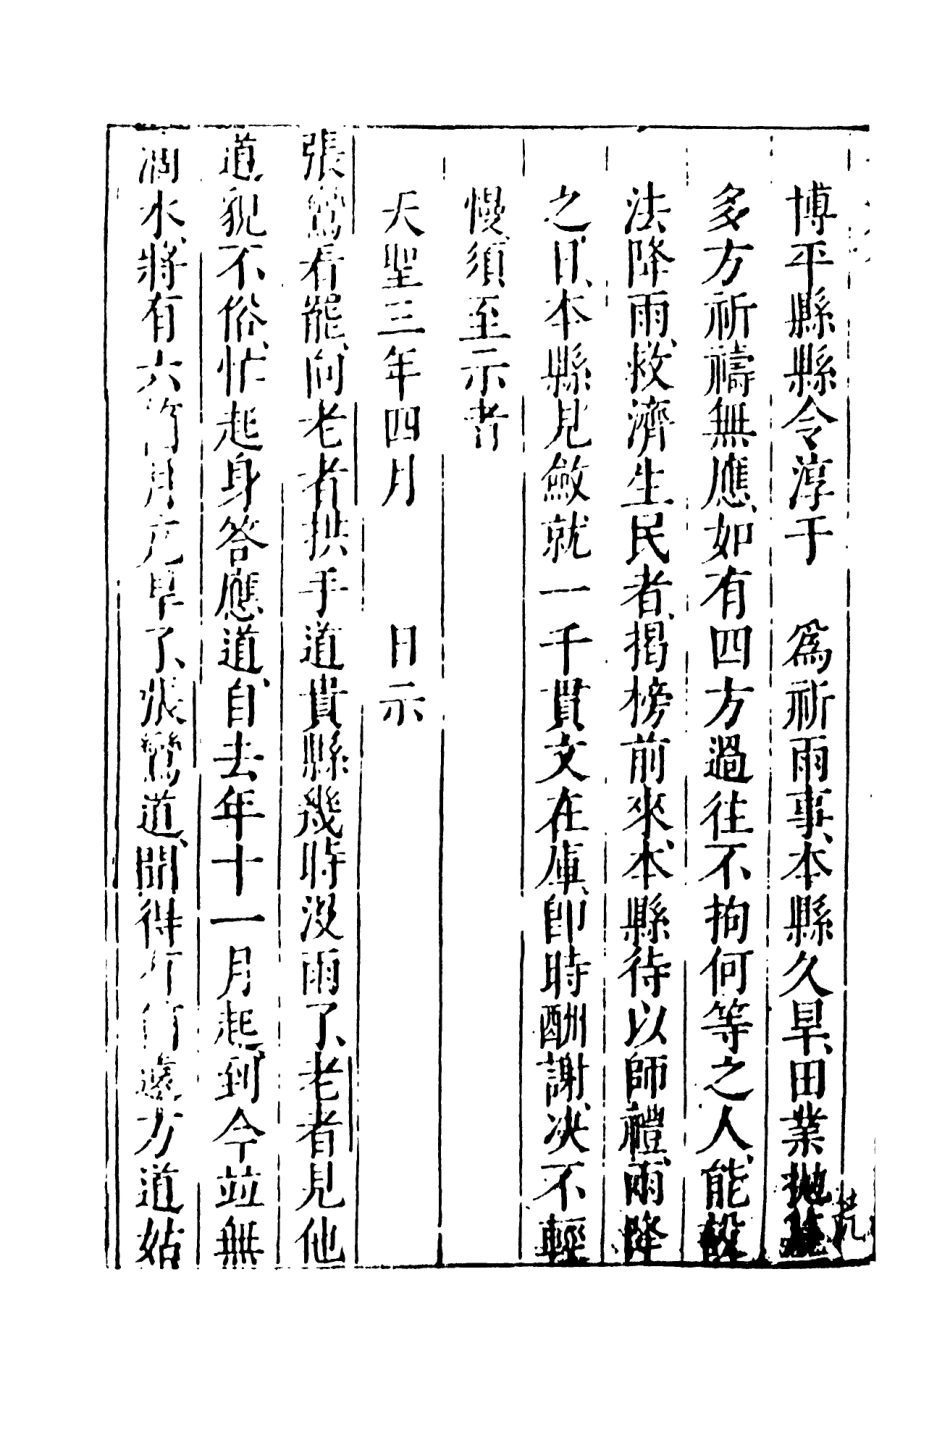 博平縣縣令淳于　爲祈雨事、本縣久旱、田業拋
多方祈禱無應、如有四方過往不拘何等之人、能
法降雨、救濟生民者、揭榜前來、本縣待以師禮、雨降
之日、本縣見斂就一千貫文在庫、卽時酬謝、决不輕
慢、須至示者
天聖三年四月　　日示
張鸞看罷、向老者拱手道、貴縣幾時没雨了、老者見他
道貌不俗、忙起身答應道、自去年十一月起、到今並無
滴水、將有六箇月亢旱了、張鸞道、聞得有箇遠方道姑